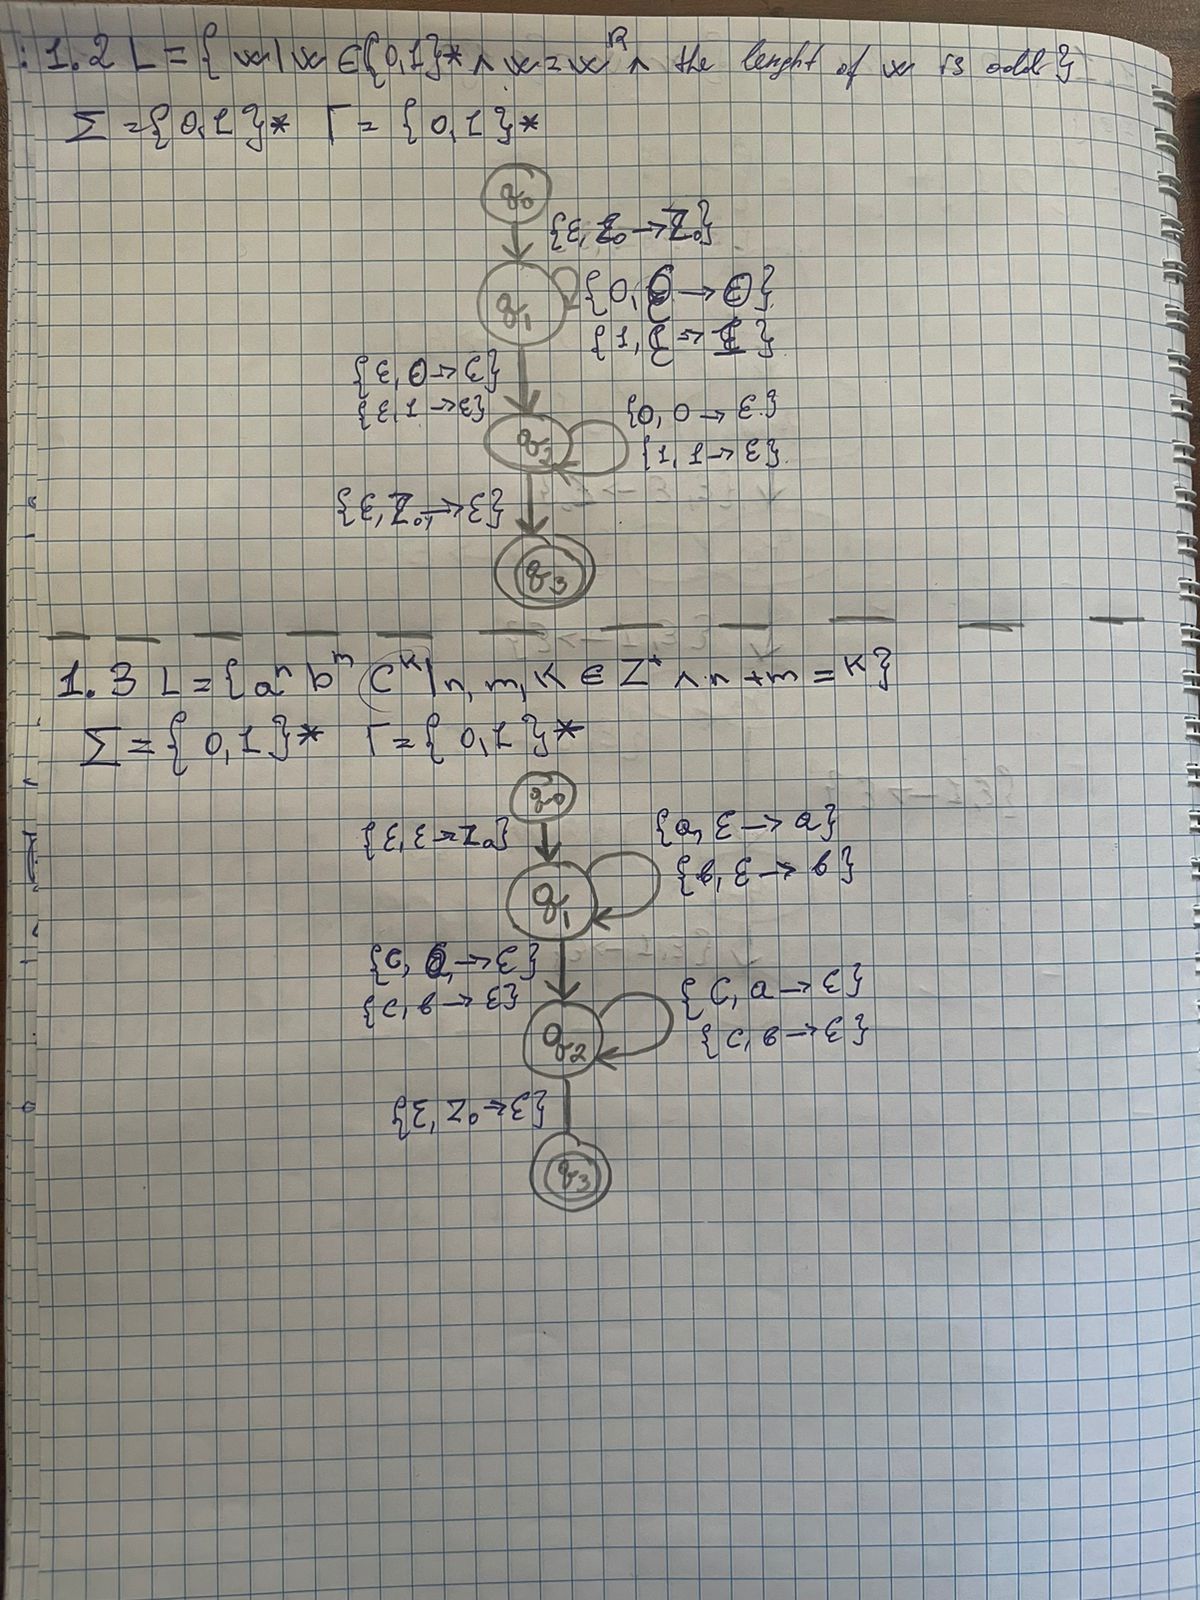 1.2 L = { x | x ∈ {0,1}* ∧ x = x^R ∧ the lenght of x is odd }
Σ = { 0, 1 }* Γ = { 0, 1 }*
q₀
{ε, Z₀ → Z₀}
q₁
{0, ε → 0}
{1, ε → 1}
{ε, 0 → ε}
{ε, 1 → ε}
q₂
{0, 0 → ε}
{1, 1 → ε}
{ε, Z₀ → ε}
q₃
1.3 L = { aⁿ bᵐ cᴷ | n, m, K ∈ Z⁺ ∧ n + m = K }
Σ = { 0, 1 }* Γ = { 0, 1 }*
q₀
{ε, ε → Z₀}
q₁
{a, ε → a}
{b, ε → b}
{c, a → ε}
{c, b → ε}
q₂
{c, a → ε}
{c, b → ε}
{ε, Z₀ → ε}
q₃